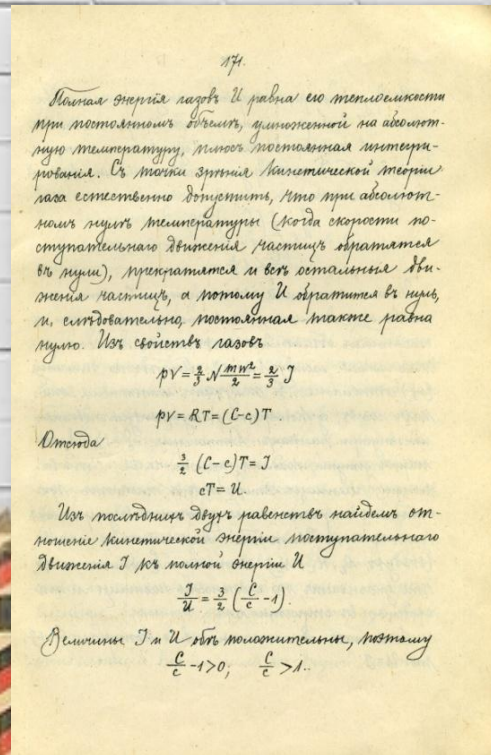 171.
Полная энергія газовъ U равна его теплоемкости
при постоянномъ объемѣ, умноженной на абсолют-
ную температуру, плюсъ постоянная интегри-
рованія. Съ точки зрѣнія кинетической теоріи
газа естественно допустить, что при абсолют-
номъ нулѣ температуры (когда скорости по-
ступательнаго движенія частицъ обратятся
въ нули), прекратятся и всѣ остальныя дви-
женія частицъ, а потому U обратится въ нуль,
и, слѣдовательно, постоянная также равна
нулю. Изъ свойствъ газовъ
pV = 2/3 N mw²/2 = 2/3 J
pV = RT = (C-c)T
Отсюда
3/2 (C-c)T = J
cT = U
Изъ послѣднихъ двухъ равенствъ найдемъ от-
ношеніе кинетической энергіи поступательнаго
движенія J къ полной энергіи U
J/U = 3/2 (C/c - 1).
Величины J и U обѣ положительны, поэтому
C/c - 1 > 0, C/c > 1..